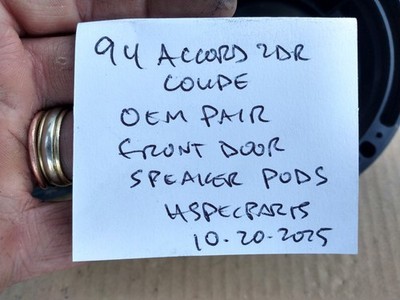 94 ACCORD 2DR
COUPE
OEM PAIR
FRONT DOOR
SPEAKER PODS
HSPECPARTS
10-20-2025